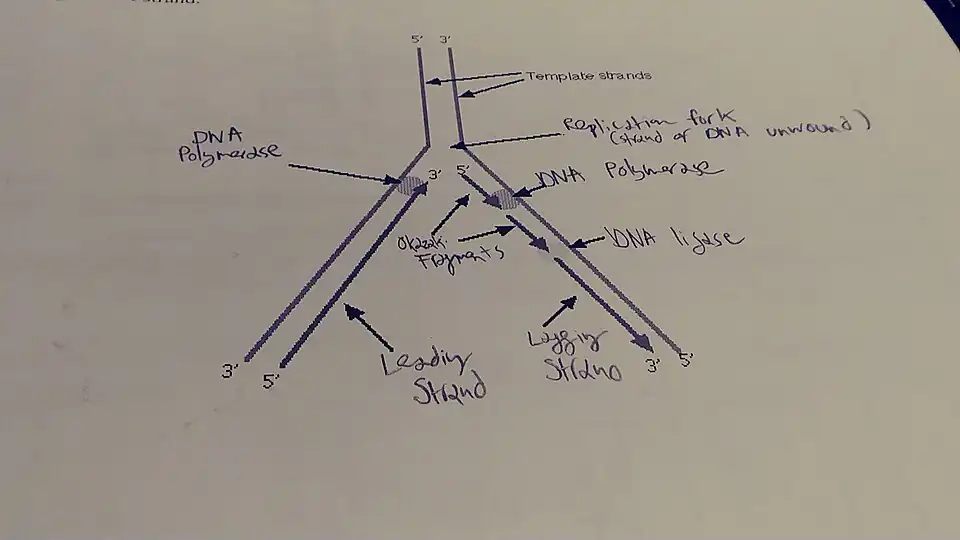 strand.
5' 3'
Template strands
Replication fork
(strand of DNA unwound)
DNA
Polymerase
3' 5'
DNA Polymerase
Okazaki
Fragments
DNA ligase
Leading
Strand
Lagging
Strand
3' 5'
3' 5'